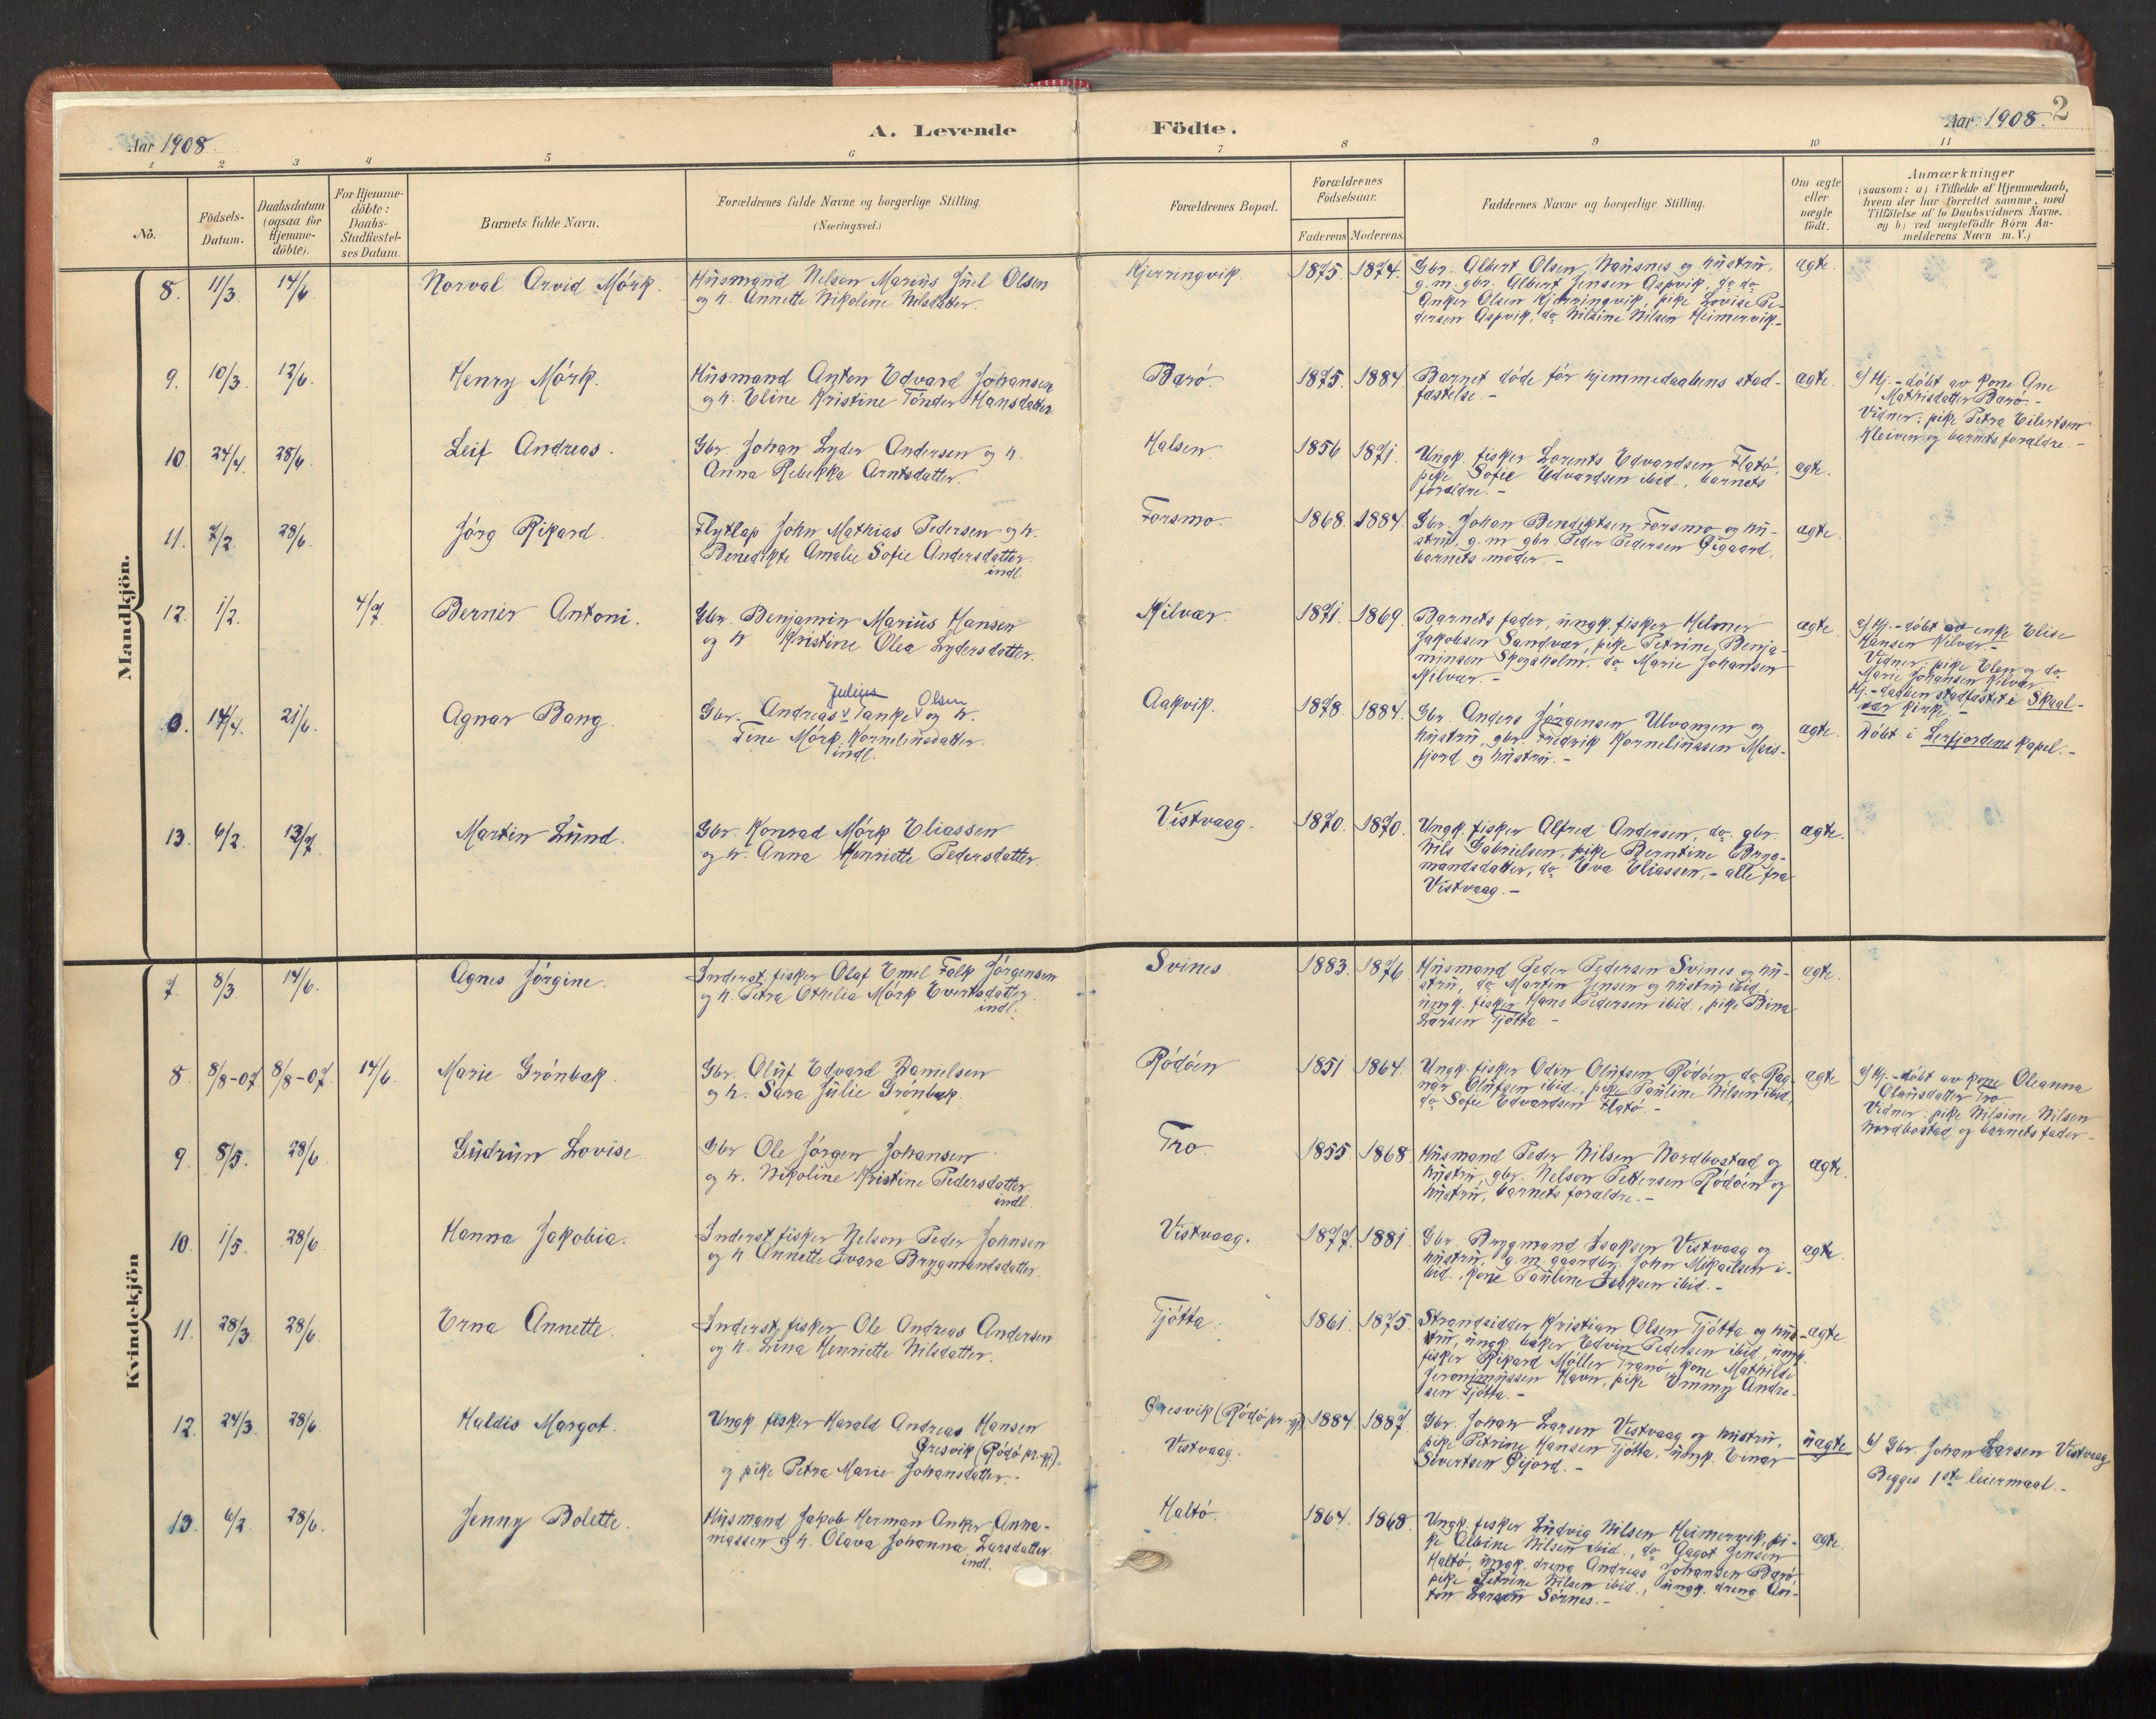 Aar 1908.
A. Levende Födte.
Aar 1908. 2
1 2 3 4 5 6 7 8 9 10 11
No.
Födsels-
Datum.
Daabsdatum
(ogsaa for
Hjemme-
döbte).
For Hjemme-
döbte:
Daabs-
Stadfæstel-
ses Datum.
Barnets fulde Navn.
Forældrenes fulde Navne og borgerlige Stilling
(Næringsvei.)
Forældrenes Bopæl.
Forældrenes
Födselsaar.
Faderens Moderens.
Faddernes Navne og borgerlige Stilling.
Om ægte
eller
uægte
födt.
Anmærkninger
(saasom: a) i Tilfælde af Hjemmedaab,
hvem der har forrettet samme, med
Tilföielse af to Daabsvidners Navne.
og b) ved uægtefödte Börn An-
melderens Navn m. V.)
Mandkjön.
8. 11/3. 14/6. Norval Arvid Mörk.
Husmand Nelson Marius Juel Olsen
og h. Annette Nikoline Nilsdatter.
Kjerringvik. 1875. 1874.
Gbr. Albert Olsen Hausnes og hustru,
g.m. gbr. Albert Jensen Aspvik, do do
Anker Olsen Kjerringvik, pike Lovise Pe-
dersen Aspvik, do Nilsine Nilsen Heimervik.-
ægte.
9. 10/3. 12/6. Henry Mörk.
Husmand Anton Edvard Johansen
og h. Eline Kristine Tönder Hansdatter
Barö. 1875. 1884.
Barnet döde för hjemmedaabens stad-
fæstelse.-
ægte.
a) Hj.-döbt av kone Ane
Mathisdatter Barö.-
Vidner: pike Petra Eilertsen
Kleiven og barnets forældre.-
10. 24/4. 28/6. Leif Andreas.
Gbr Johan Lyder Andersen og h.
Anna Rebekka Arntsdatter.
Halsen. 1856 1871.
Ungk. fisker Lorents Edvardsen Flatö,
pike Sofie Edvardsen ibid., barnets
forældre.-
ægte.
11. 7/2. 28/6. Jörg Rikard.
Flytlap John Mathias Pedersen og h.
Benedikte Amalie Sofie Andersdatter.
indl.
Forsmo. 1868. 1884.
Gbr. Johan Bendiktsen Forsmo og hu-
stru, g.m. gbr. Peder Pedersen Øigaard,
barnets moder.-
ægte.
12. 1/2. 4/7. Berner Antoni.
Gbr. Benjamin Marius Hansen
og h. Kristine Olea Lydersdatter.
Kilvær. 1871. 1869.
Barnets fader, ungk. fisker Helmer
Jakobsen Sandvær, pike Petrine Benja-
minsen Skogsholm, do Marie Johansen
Kilvær.-
ægte.
a) Hj.-döbt av enke Elise
Hansen Kilvær.-
Vidner: pike Elen og do
Marie Johansen Kilvær
Hj.-daaben stadfæstet i Skaal-
vær kirke.-
0. 14/4. 21/6. Agnar Bang.
Julius Olsen
Gbr. Andreas v Tanke v og h.
Tine Mörk Korneliusdatter.
indl.
Aakvik. 1878. 1884.
Gbr. Anders Jörgensen Ulvangen og
hustru, gbr. Fredrik Korneliussen Meis-
fjord og hustru.-
ægte.
Döbt i Leirfjordens kapel.-
13. 6/2. 12/7. Martin Lund.
Gbr. Konrad Mörk Eliassen
og h. Anna Henriette Pedersdatter.
Vistvaag. 1870. 1870.
Ungk. fisker Alfred Andersen, do gbr.
Nils Gabrielsen, pike Berntine Bryg-
mandsdatter, do Eva Eliassen,- alle fra
Vistvaag.-
ægte.
Kvindekjön
7. 8/3. 14/6. Agnes Jörgine.
Inderst, fisker Olaf Emil Falk Jörgensen
og h. Petra Othelia Mörk Evertsdatter.
indl.
Svines 1883. 1876
Husmand Peder Pedersen Svines og hu-
stru, do Martin Jensen og hustru ibid.,
ungk. fisker Hans Pedersen ibid., pike Bina
Larsen Tjötta.-
ægte.
8. 8/8-07. 8/8-07. 14/6. Marie Grönbæk.
Gbr. Oluf Edvard Danielsen
og h. Sara Julie Grönbæk.
Rödöen 1851 1864.
Ungk. fisker Odin Olufsen Rödöen do Rag-
nar Olufsen ibid., pike Pauline Nilsen ibid,
do Sofie Edvardsen Flatö.-
ægte
a) Hj.-döbt av kone Oleanna
Olausdatter Tro
Vidner: pike Nilsine Nilsen
Nordbostad og barnets fader.-
9. 8/5. 28/6. Gudrun Lovise
Gbr Ole Jörgen Johansen
og h. Nikoline Kristine Pedersdatter
indl.
Tro. 1855 1868
Husmand Peder Nilsen Nordbostad og
hustru, gbr. Nelson Pettersen Rödöen og
hustru, barnets forældre.-
ægte.
10. 1/5. 28/6. Hanna Jakobia.
Inderst, fisker Nelson Peder Johnsen
og h. Annette Svara Brygmandsdatter.
Vistvaag. 1877. 1881.
Gbr. Brygmand Isaksen Vistvaag og
hustru, g.m. gaardbr. John Mikaelsen i-
bid., kone Pauline Isaksen ibid.-
ægte.
11. 28/3. 28/6. Erna Annette.
Inderst, fisker Ole Andreas Andersen
og h. Lina Henriette Nilsdatter.
Tjötta. 1861. 1875.
Strandsidder Kristian Olsen Tjötta og hus-
tru, ungk. baker Edvin Pedersen ibid., ungk.
fisker Rikard Möller Tranö, kone Mathilde
Jeronimussen Havn, pike Emmy Andre-
sen Tjötta.-
ægte.
12. 24/3. 28/6 Haldis Margot.
Ungk. fisker Harald Andreas Hansen
Gresvik (Rödö pr.-gj).
og pike Petra Marie Johansdatter.-
Gresvik (Rödö pr.-gj)
Vistvaag. 1884. 1887.
Gbr. Johan Larsen Vistvaag og hustru,
pike Petrine Hansen Tjötta, ungk. Einar
Sivertsen Øijord.-
uægte
b) Gbr. Johan Larsen Vistvaag
Begges 1ste leiermaal.-
13. 6/2. 28/6. Jenny Bolette.
Husmand Jakob Herman Anker Anna-
niassen og h. Olava Johanna Larsdatter.
indl.
Haltö. 1864. 1868.
Ungk. fisker Ludvig Nilsen Heimervik, pi-
ke Albine Nilsen ibid., do Aagot Jensen
Haltö, ungk. dreng Andreas Johansen Barö
pike Petrine Nilsen ibid., ungk. dreng An-
ton Larsen Sörnes.-
ægte.